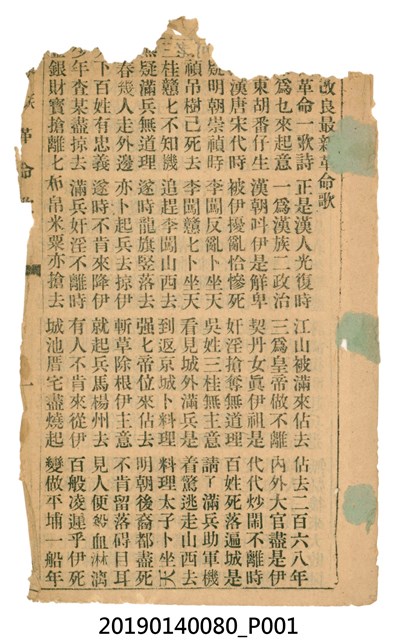 改良最新革命歌
革命一歌詩 正是漢人光復時 江山被滿來佔去 佔去二百六八年
為乜來起意 一為漢族二政治 三為皇帝做不離 內外大官盡是伊
東胡番仔生 漢朝叫伊是鮮卑 契丹女真伊祖是 代代炒鬧不離時
漢唐宋代時 被伊擾亂恰慘死 奸淫搶奪無道理 百姓死落遍城是
疑明朝崇禎時 李闖反亂卜坐天 吳姓三桂無主意 請了滿兵助軍機
禎吊樹已死去 李闖戇乜卜坐天 看見城外滿兵是 着驚逃走山西去
桂戇乜不知機 追趕李闖山西去 到返京城卜料理 料理太子卜坐天
疑滿兵無道理 遂時龍旗竪落去 强乜帝位來佔去 明朝後裔都盡死
春幾人走外邊 亦卜起兵去掠伊 斬草除根伊主意 不肯留落碍目耳
下百姓有忠義 遂時不肯來降伊 就起兵馬楊州去 見人便殺血淋漓
年查某盡掠去 滿兵奸淫不離時 有人不肯來從伊 百般凌遲乎伊死
銀財寶搶離乜 布帛米粟亦搶去 城池厝宅盡燒起 變做平埔一船年
族革命歌
一
20190140080_P001